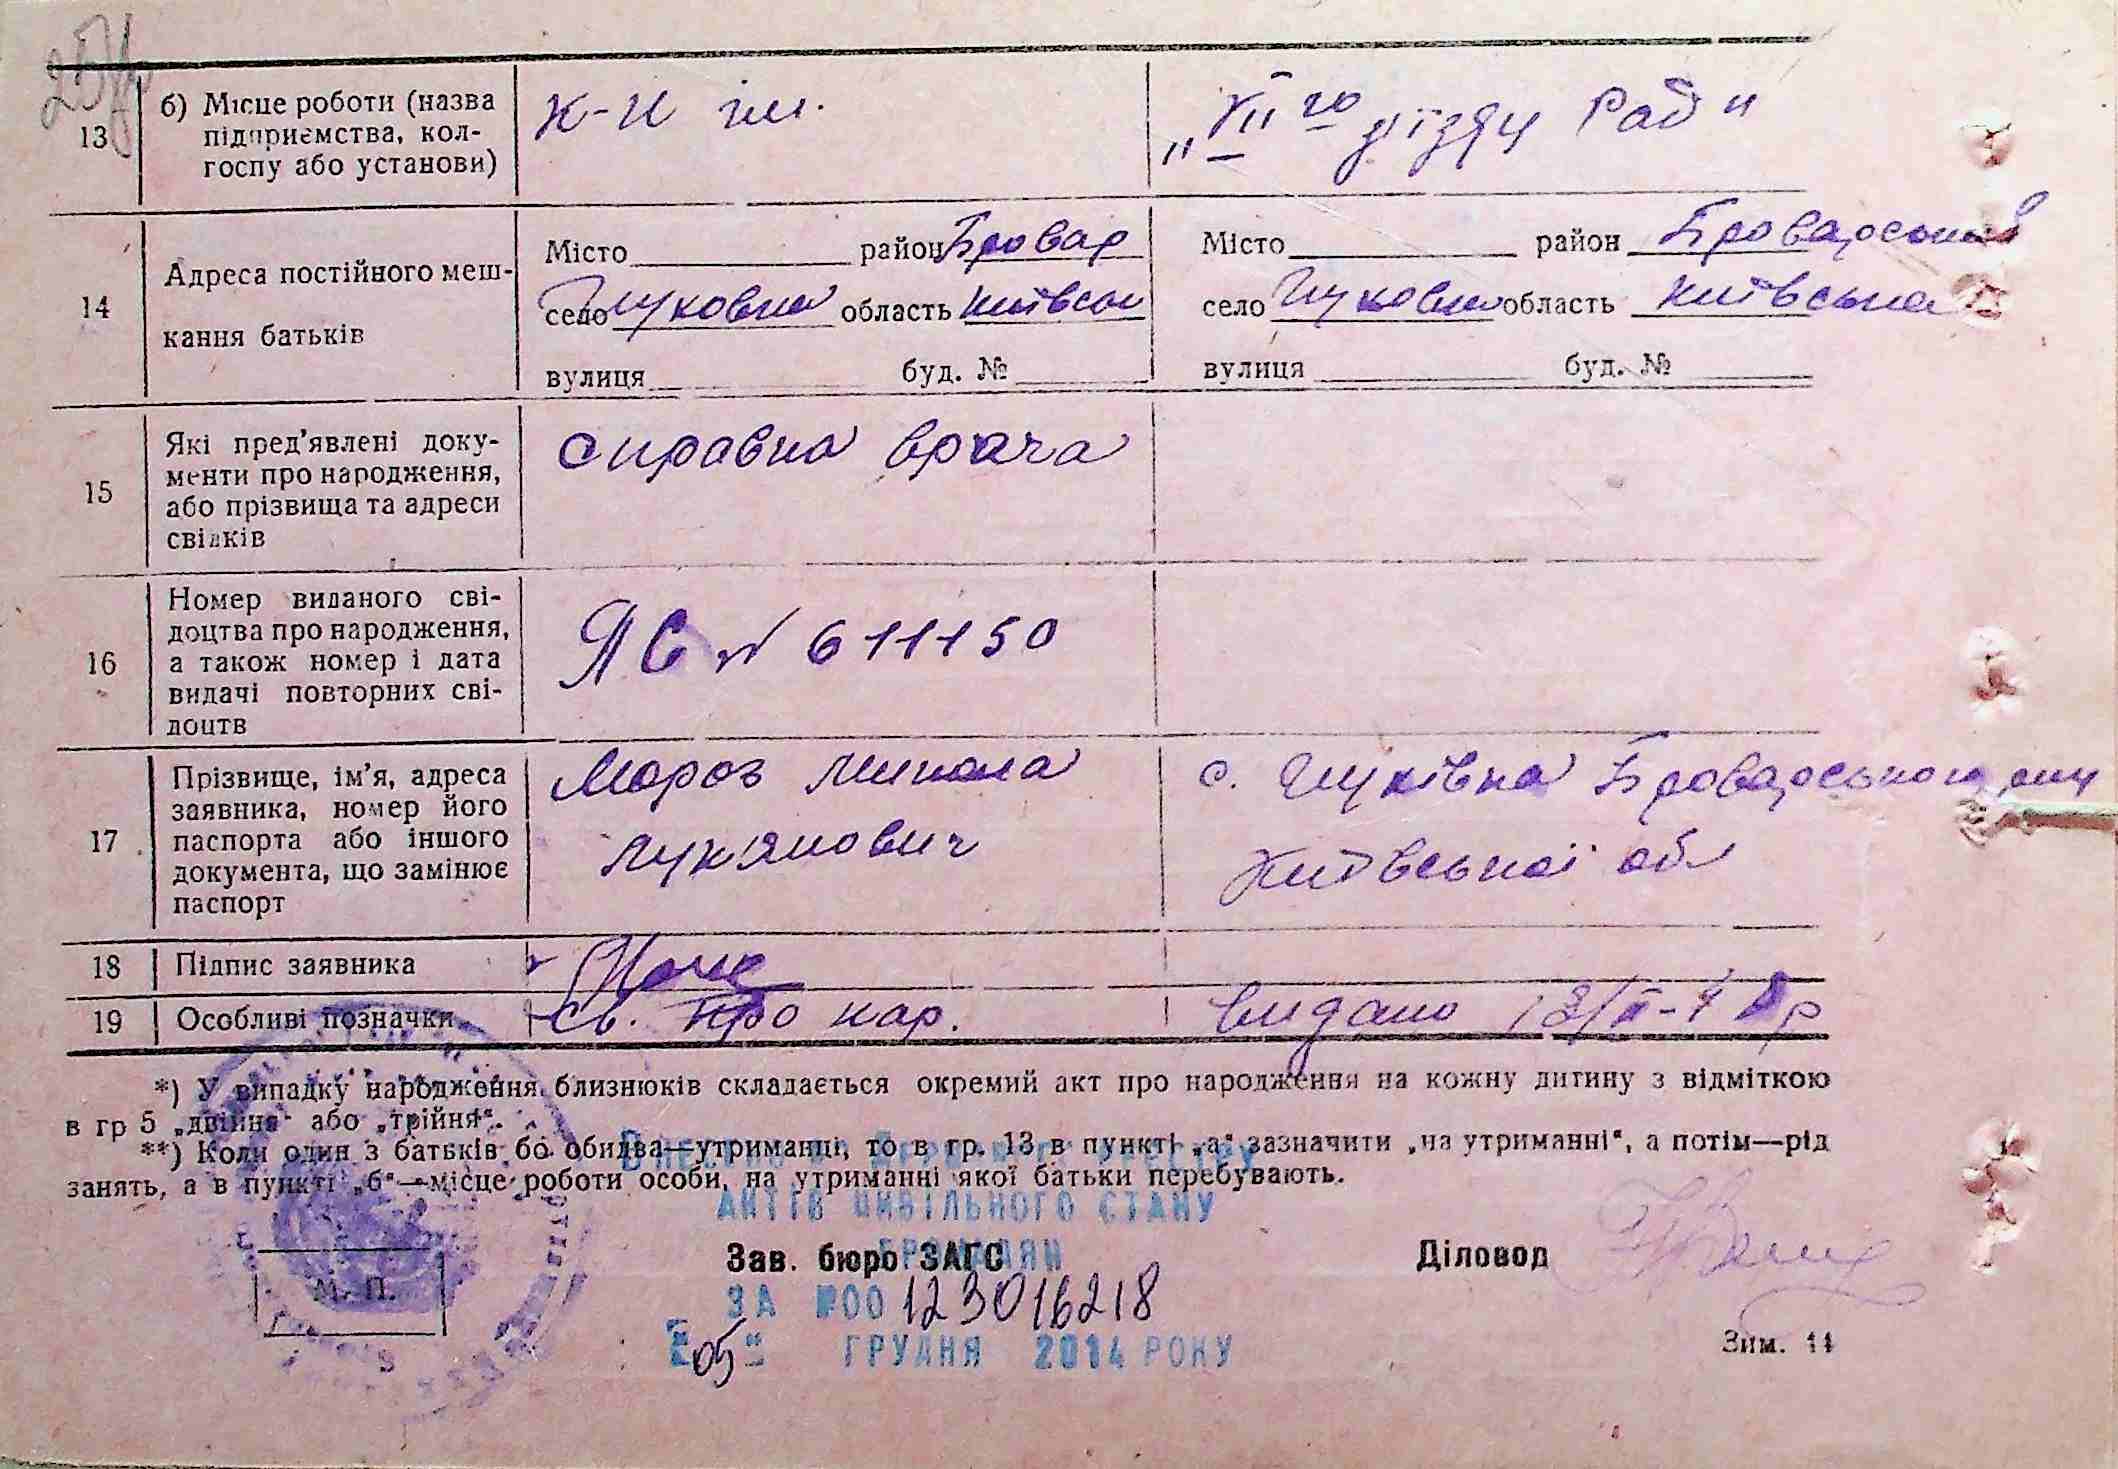 13
б) Місце роботи (назва
підприємства, кол-
госпу або установи)
К-п ім.
„VІІ го з'їзду Рад"
14
Адреса постійного меш-
кання батьків
Місто район Бровар
село область Київськ
вулиця буд. №
Місто район Броварський
село область Київська
вулиця буд. №
15
Які пред'явлені доку-
менти про народження,
або прізвища та адреси
свідків
справка врача
16
Номер виданого сві-
доцтва про народження,
а також номер і дата
видачі повторних сві-
доцтв
ЯС № 611150
17
Прізвище, ім'я, адреса
заявника, номер його
паспорта або іншого
документа, що замінює
паспорт
Мороз Микола
Лукянович
с. Броварського р-ну
Київської обл
18
Підпис заявника
19
Особливі позначки
Св. про нар.
видано
*) У випадку народження близнюків складається окремий акт про народження на кожну дитину з відміткою
в гр 5 „двійня" або „трійня".
**) Коли один з батьків бо обидва—утриманці, то в гр. 13 в пункті „а" зазначити „на утриманні", а потім—рід
занять, а в пункті „б"—місце роботи особи, на утриманні якої батьки перебувають.
АКТІВ ЦИВІЛЬНОГО СТАНУ
ГРОМАДЯН
Зав. бюро ЗАГС
Діловод
М. П.
ЗА №00 123016218
"05" ГРУДНЯ 2014 РОКУ
Зим. 11